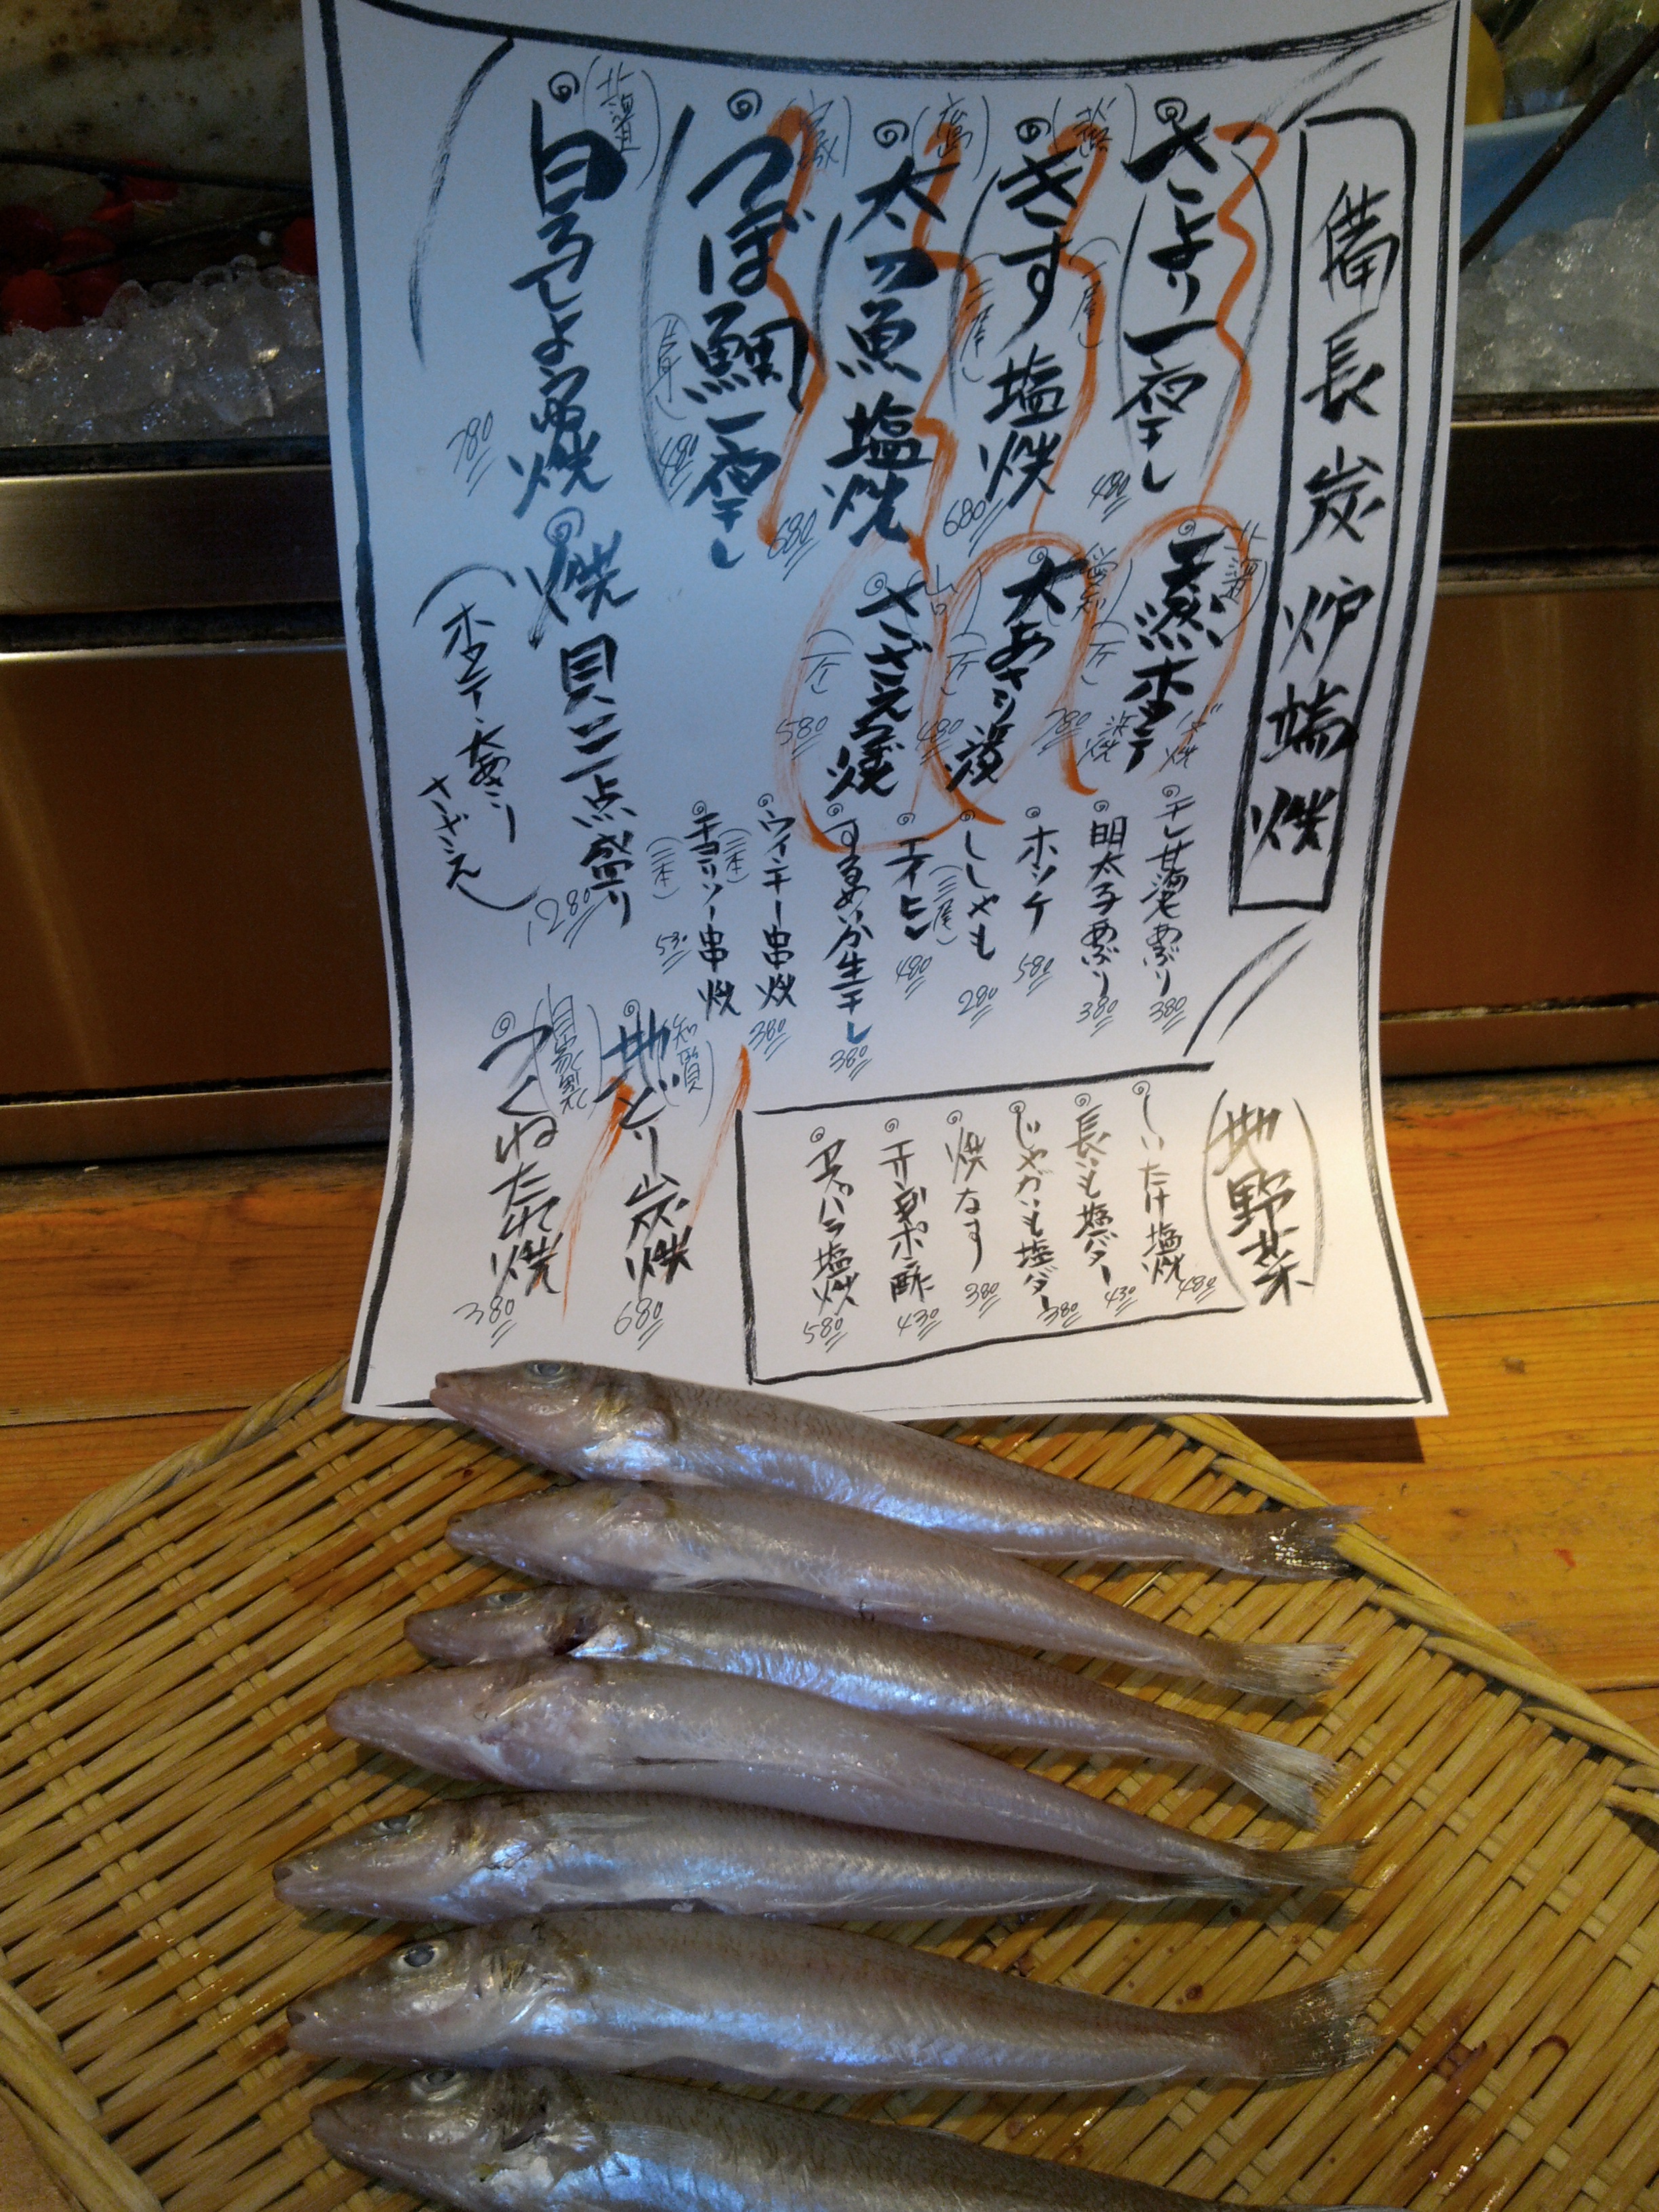 備長炭炉端焼
さより一夜干し
(二尾)
480
(北海道)
天然ホタテ
バター焼
浜焼
(一ケ)
780
干し甘海老あぶり
380
明太子あぶり
380
きす塩焼
(三尾)
680
(愛知)
大あさり焼
(一ケ)
480
ホッケ
580
ししゃも
(三尾)
280
(広島)
太刀魚塩焼
680
さざえつぼ焼
(一ケ)
580
エイヒレ
480
するめいか生干し
380
(宮城)
つぼ鯛一夜干し
480
ウインナー串焼
(二本)
380
チョリソー串焼
(二本)
530
(北海道)
白子しょうゆ焼
780
焼貝三点盛り
1280
(ホタテ、大あさり
さざえ)
地どり炭焼
680
(自家製)
つくねたれ焼
380
(地野菜)
しいたけ塩焼
480
長いも塩バター
430
じゃがいも塩バター
380
焼なす
380
430
アスパラ塩焼
580